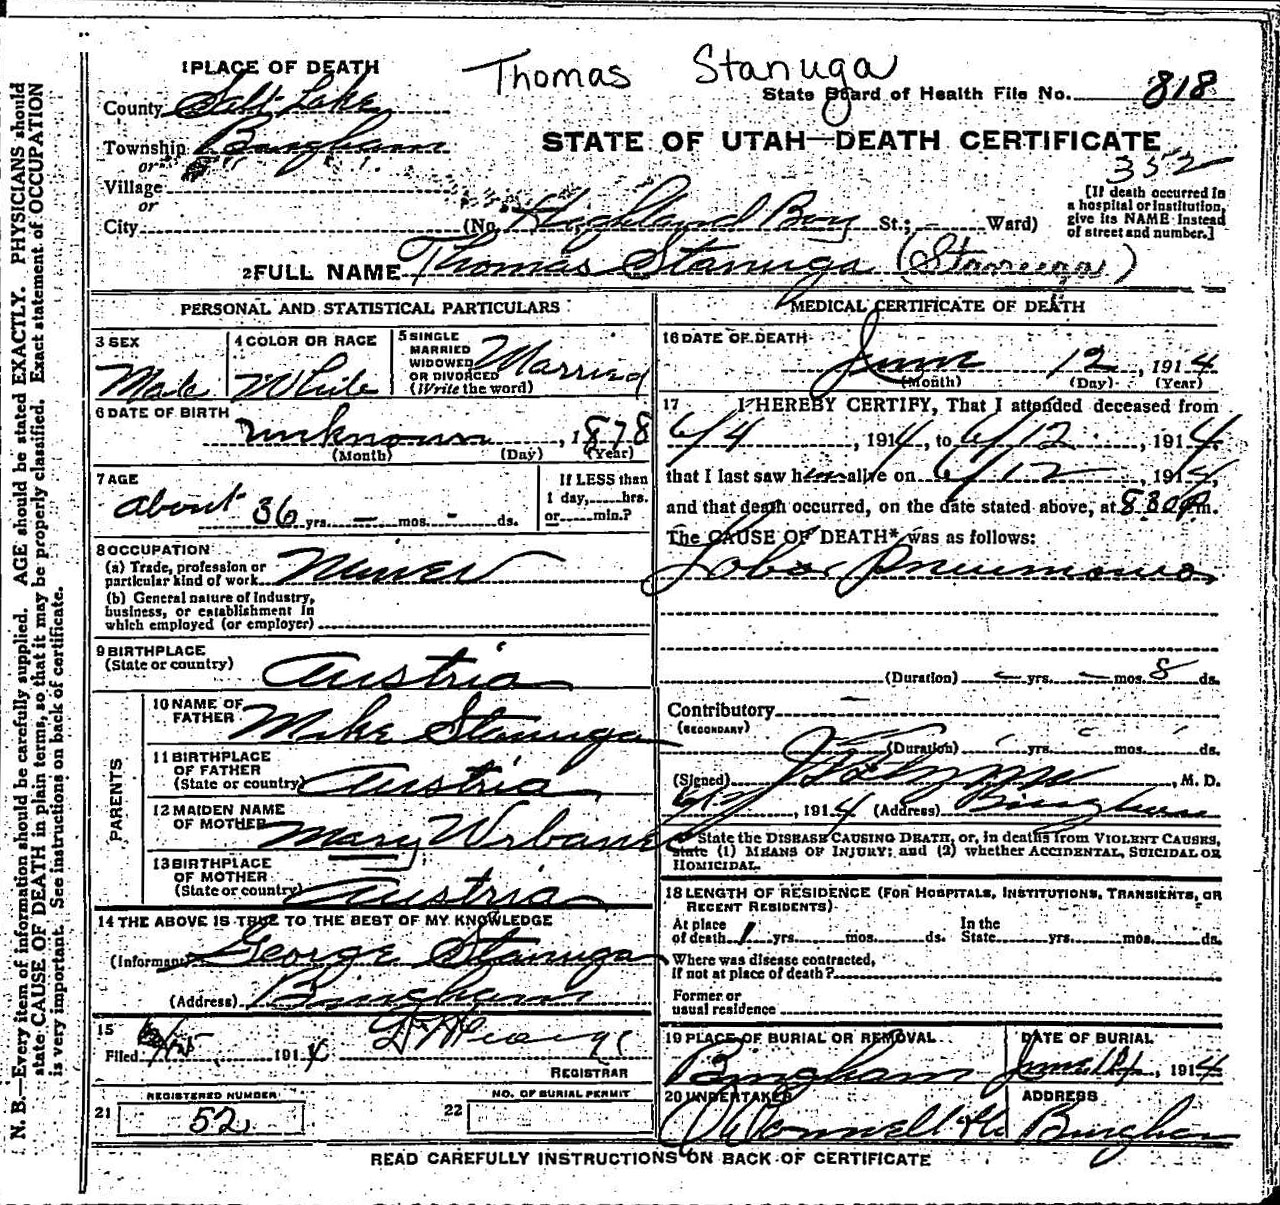 Thomas Stanuga
1 PLACE OF DEATH
State Board of Health File No. 818
County Salt Lake
STATE OF UTAH—DEATH CERTIFICATE
Township Bingham
or
352
Village
or
[If death occurred in
a hospital or institution,
give its NAME instead
of street and number.]
City (No. Highland Boy St.; Ward)
2 FULL NAME Thomas Stanuga
PERSONAL AND STATISTICAL PARTICULARS
3 SEX
Male
4 COLOR OR RACE
White
5 SINGLE
MARRIED
WIDOWED
OR DIVORCED
(Write the word)
Married
6 DATE OF BIRTH
unknown, 1878
(Month) (Day) (Year)
7 AGE
about 36 yrs. — mos. - ds.
If LESS than
1 day, hrs.
or min.?
8 OCCUPATION
(a) Trade, profession or
particular kind of work Miner
(b) General nature of industry,
business, or establishment in
which employed (or employer)
9 BIRTHPLACE
(State or country) Austria
PARENTS
10 NAME OF
FATHER Make Stanuga
11 BIRTHPLACE
OF FATHER
(State or country) Austria
12 MAIDEN NAME
OF MOTHER Mary
13 BIRTHPLACE
OF MOTHER
(State or country) Austria
14 THE ABOVE IS TRUE TO THE BEST OF MY KNOWLEDGE
(Informant) George Stanuga
(Address) Bingham
15
Filed 1914
REGISTRAR
21 REGISTERED NUMBER
52
22 NO. OF BURIAL PERMIT
MEDICAL CERTIFICATE OF DEATH
16 DATE OF DEATH
June 12, 1914
(Month) (Day) (Year)
17 I HEREBY CERTIFY, That I attended deceased from
6/4, 1914, to 6/12, 1914,
that I last saw him alive on 6/12, 1914,
and that death occurred, on the date stated above, at 8 30 P.m.
The CAUSE OF DEATH* was as follows:
Lobar Pneumonia
(Duration) — yrs. — mos. 8 ds.
Contributory —
(SECONDARY)
(Duration) yrs. mos. ds.
(Signed) , M. D.
, 1914 (Address) Bingham
* State the DISEASE CAUSING DEATH, or, in deaths from VIOLENT CAUSES,
state (1) MEANS OF INJURY; and (2) whether ACCIDENTAL, SUICIDAL OR
HOMICIDAL.
18 LENGTH OF RESIDENCE (FOR HOSPITALS, INSTITUTIONS, TRANSIENTS, OR
RECENT RESIDENTS)
At place
of death 1 yrs. mos. ds.
In the
State yrs. mos. ds.
Where was disease contracted,
if not at place of death?
Former or
usual residence
19 PLACE OF BURIAL OR REMOVAL
Bingham
DATE OF BURIAL
June, 1914
20 UNDERTAKER
ADDRESS
Bingham
READ CAREFULLY INSTRUCTIONS ON BACK OF CERTIFICATE
N. B.—Every item of information should be carefully supplied. AGE should be stated EXACTLY. PHYSICIANS should
state CAUSE OF DEATH in plain terms, so that it may be properly classified. Exact statement of OCCUPATION
is very important. See instructions on back of certificate.